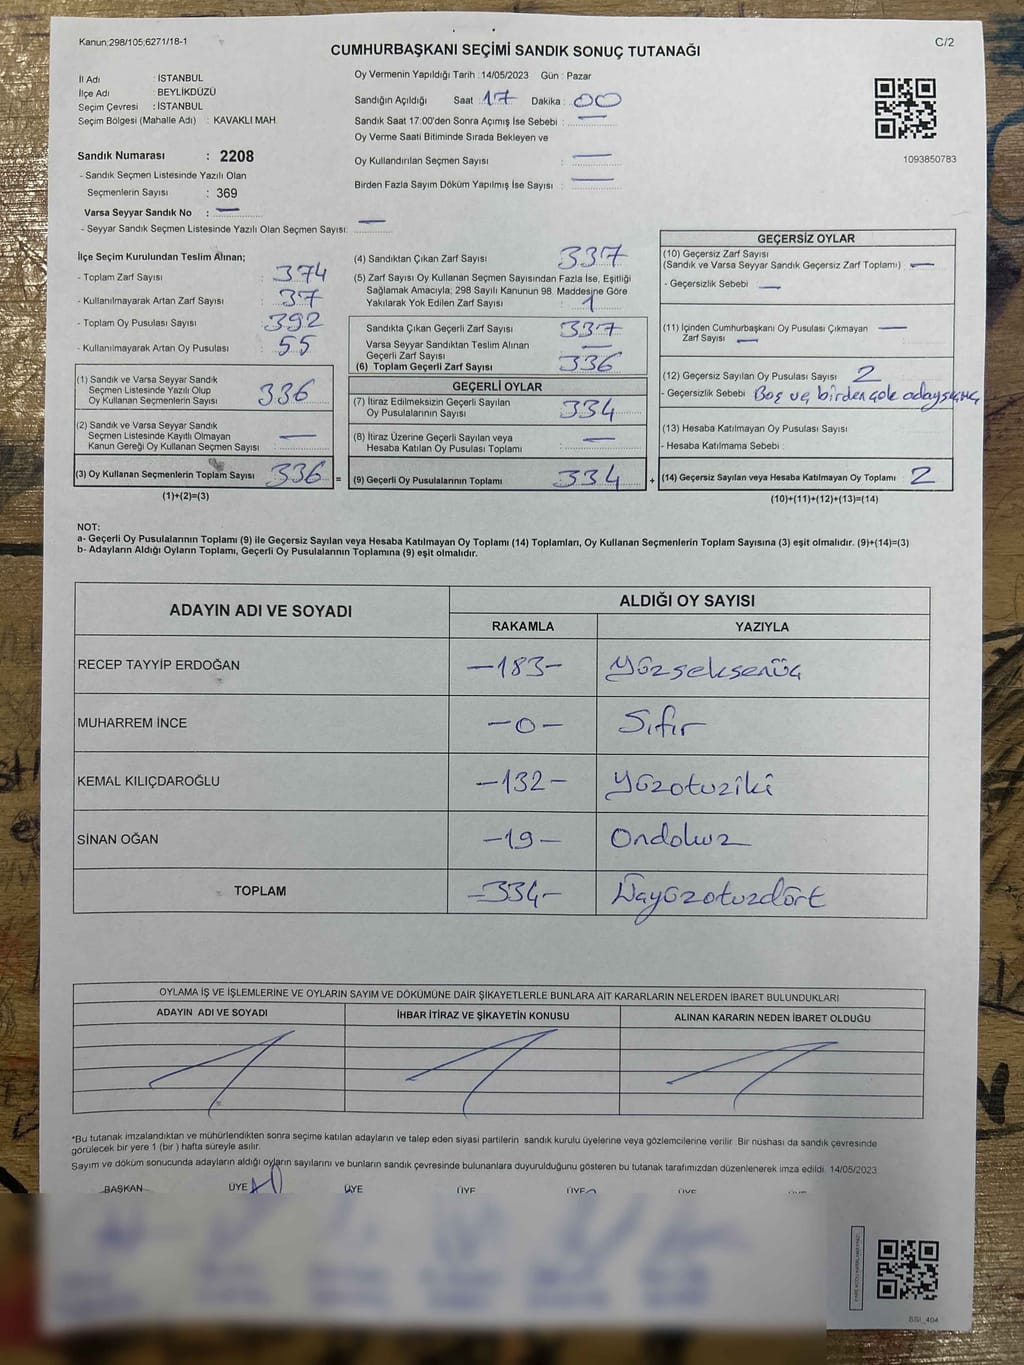 Kanun;298/105;6271/18-1
C/2
CUMHURBAŞKANI SEÇİMİ SANDIK SONUÇ TUTANAĞI
İl Adı : İSTANBUL
İlçe Adı : BEYLİKDÜZÜ
Seçim Çevresi : İSTANBUL
Seçim Bölgesi (Mahalle Adı) : KAVAKLI MAH.
Sandık Numarası : 2208
- Sandık Seçmen Listesinde Yazılı Olan
Seçmenlerin Sayısı : 369
Varsa Seyyar Sandık No : —
- Seyyar Sandık Seçmen Listesinde Yazılı Olan Seçmen Sayısı: —
Oy Vermenin Yapıldığı Tarih :14/05/2023 Gün : Pazar
Sandığın Açıldığı Saat : 17 Dakika : 00
Sandık Saat 17:00'den Sonra Açımış İse Sebebi : —
Oy Verme Saati Bitiminde Sırada Bekleyen ve
Oy Kullandırılan Seçmen Sayısı : —
Birden Fazla Sayım Döküm Yapılmış İse Sayısı : —
1093850783
İlçe Seçim Kurulundan Teslim Alınan;
- Toplam Zarf Sayısı : 374
- Kullanılmayarak Artan Zarf Sayısı : 37
- Toplam Oy Pusulası Sayısı : 392
- Kullanılmayarak Artan Oy Pusulası : 55
(1) Sandık ve Varsa Seyyar Sandık
Seçmen Listesinde Yazılı Olup
Oy Kullanan Seçmenlerin Sayısı : 336
(2) Sandık ve Varsa Seyyar Sandık
Seçmen Listesinde Kayıtlı Olmayan
Kanun Gereği Oy Kullanan Seçmen Sayısı : —
(3) Oy Kullanan Seçmenlerin Toplam Sayısı 336 =
(1)+(2)=(3)
(4) Sandıktan Çıkan Zarf Sayısı : 337
(5) Zarf Sayısı Oy Kullanan Seçmen Sayısından Fazla İse, Eşitliği
Sağlamak Amacıyla; 298 Sayılı Kanunun 98. Maddesine Göre
Yakılarak Yok Edilen Zarf Sayısı : 1
Sandıkta Çıkan Geçerli Zarf Sayısı : 337
Varsa Seyyar Sandıktan Teslim Alınan
Geçerli Zarf Sayısı : —
(6) Toplam Geçerli Zarf Sayısı : 336
GEÇERLİ OYLAR
(7) İtiraz Edilmeksizin Geçerli Sayılan
Oy Pusulalarının Sayısı : 334
(8) İtiraz Üzerine Geçerli Sayılan veya
Hesaba Katılan Oy Pusulası Toplamı : —
(9) Geçerli Oy Pusulalarının Toplamı 334 +
GEÇERSİZ OYLAR
(10) Geçersiz Zarf Sayısı
(Sandık ve Varsa Seyyar Sandık Geçersiz Zarf Toplamı) : —
- Geçersizlik Sebebi : —
(11) İçinden Cumhurbaşkanı Oy Pusulası Çıkmayan —
Zarf Sayısı : —
(12) Geçersiz Sayılan Oy Pusulası Sayısı : 2
- Geçersizlik Sebebi : Boş ve birden çok aday
(13) Hesaba Katılmayan Oy Pusulası Sayısı :
- Hesaba Katılmama Sebebi :
(14) Geçersiz Sayılan veya Hesaba Katılmayan Oy Toplamı : 2
(10)+(11)+(12)+(13)=(14)
NOT:
a- Geçerli Oy Pusulalarının Toplamı (9) ile Geçersiz Sayılan veya Hesaba Katılmayan Oy Toplamı (14) Toplamları, Oy Kullanan Seçmenlerin Toplam Sayısına (3) eşit olmalıdır. (9)+(14)=(3)
b- Adayların Aldığı Oyların Toplamı, Geçerli Oy Pusulalarının Toplamına (9) eşit olmalıdır.
ADAYIN ADI VE SOYADI ALDIĞI OY SAYISI
RAKAMLA YAZIYLA
RECEP TAYYİP ERDOĞAN —183— Yüzseksenüç
MUHARREM İNCE —0— Sıfır
KEMAL KILIÇDAROĞLU —132— Yüzotuziki
SİNAN OĞAN —19— Ondokuz
TOPLAM —334— Üçyüzotuzdört
OYLAMA İŞ VE İŞLEMLERİNE VE OYLARIN SAYIM VE DÖKÜMÜNE DAİR ŞİKAYETLERLE BUNLARA AİT KARARLARIN NELERDEN İBARET BULUNDUKLARI
ADAYIN ADI VE SOYADI İHBAR İTİRAZ VE ŞİKAYETİN KONUSU ALINAN KARARIN NEDEN İBARET OLDUĞU
*Bu tutanak imzalandıktan ve mühürlendikten sonra seçime katılan adayların ve talep eden siyasi partilerin sandık kurulu üyelerine veya gözlemcilerine verilir. Bir nüshası da sandık çevresinde
görülecek bir yere 1 (bir ) hafta süreyle asılır.
Sayım ve döküm sonucunda adayların aldığı oyların sayılarını ve bunların sandık çevresinde bulunanlara duyurulduğunu gösteren bu tutanak tarafımızdan düzenlenerek imza edildi. 14/05/2023
BAŞKAN ÜYE ÜYE ÜYE ÜYE ÜYE ÜYE